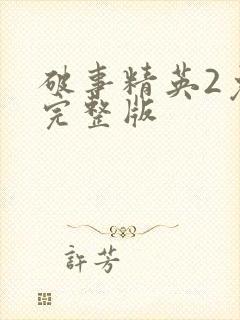 破事精英2
完整版
許芳